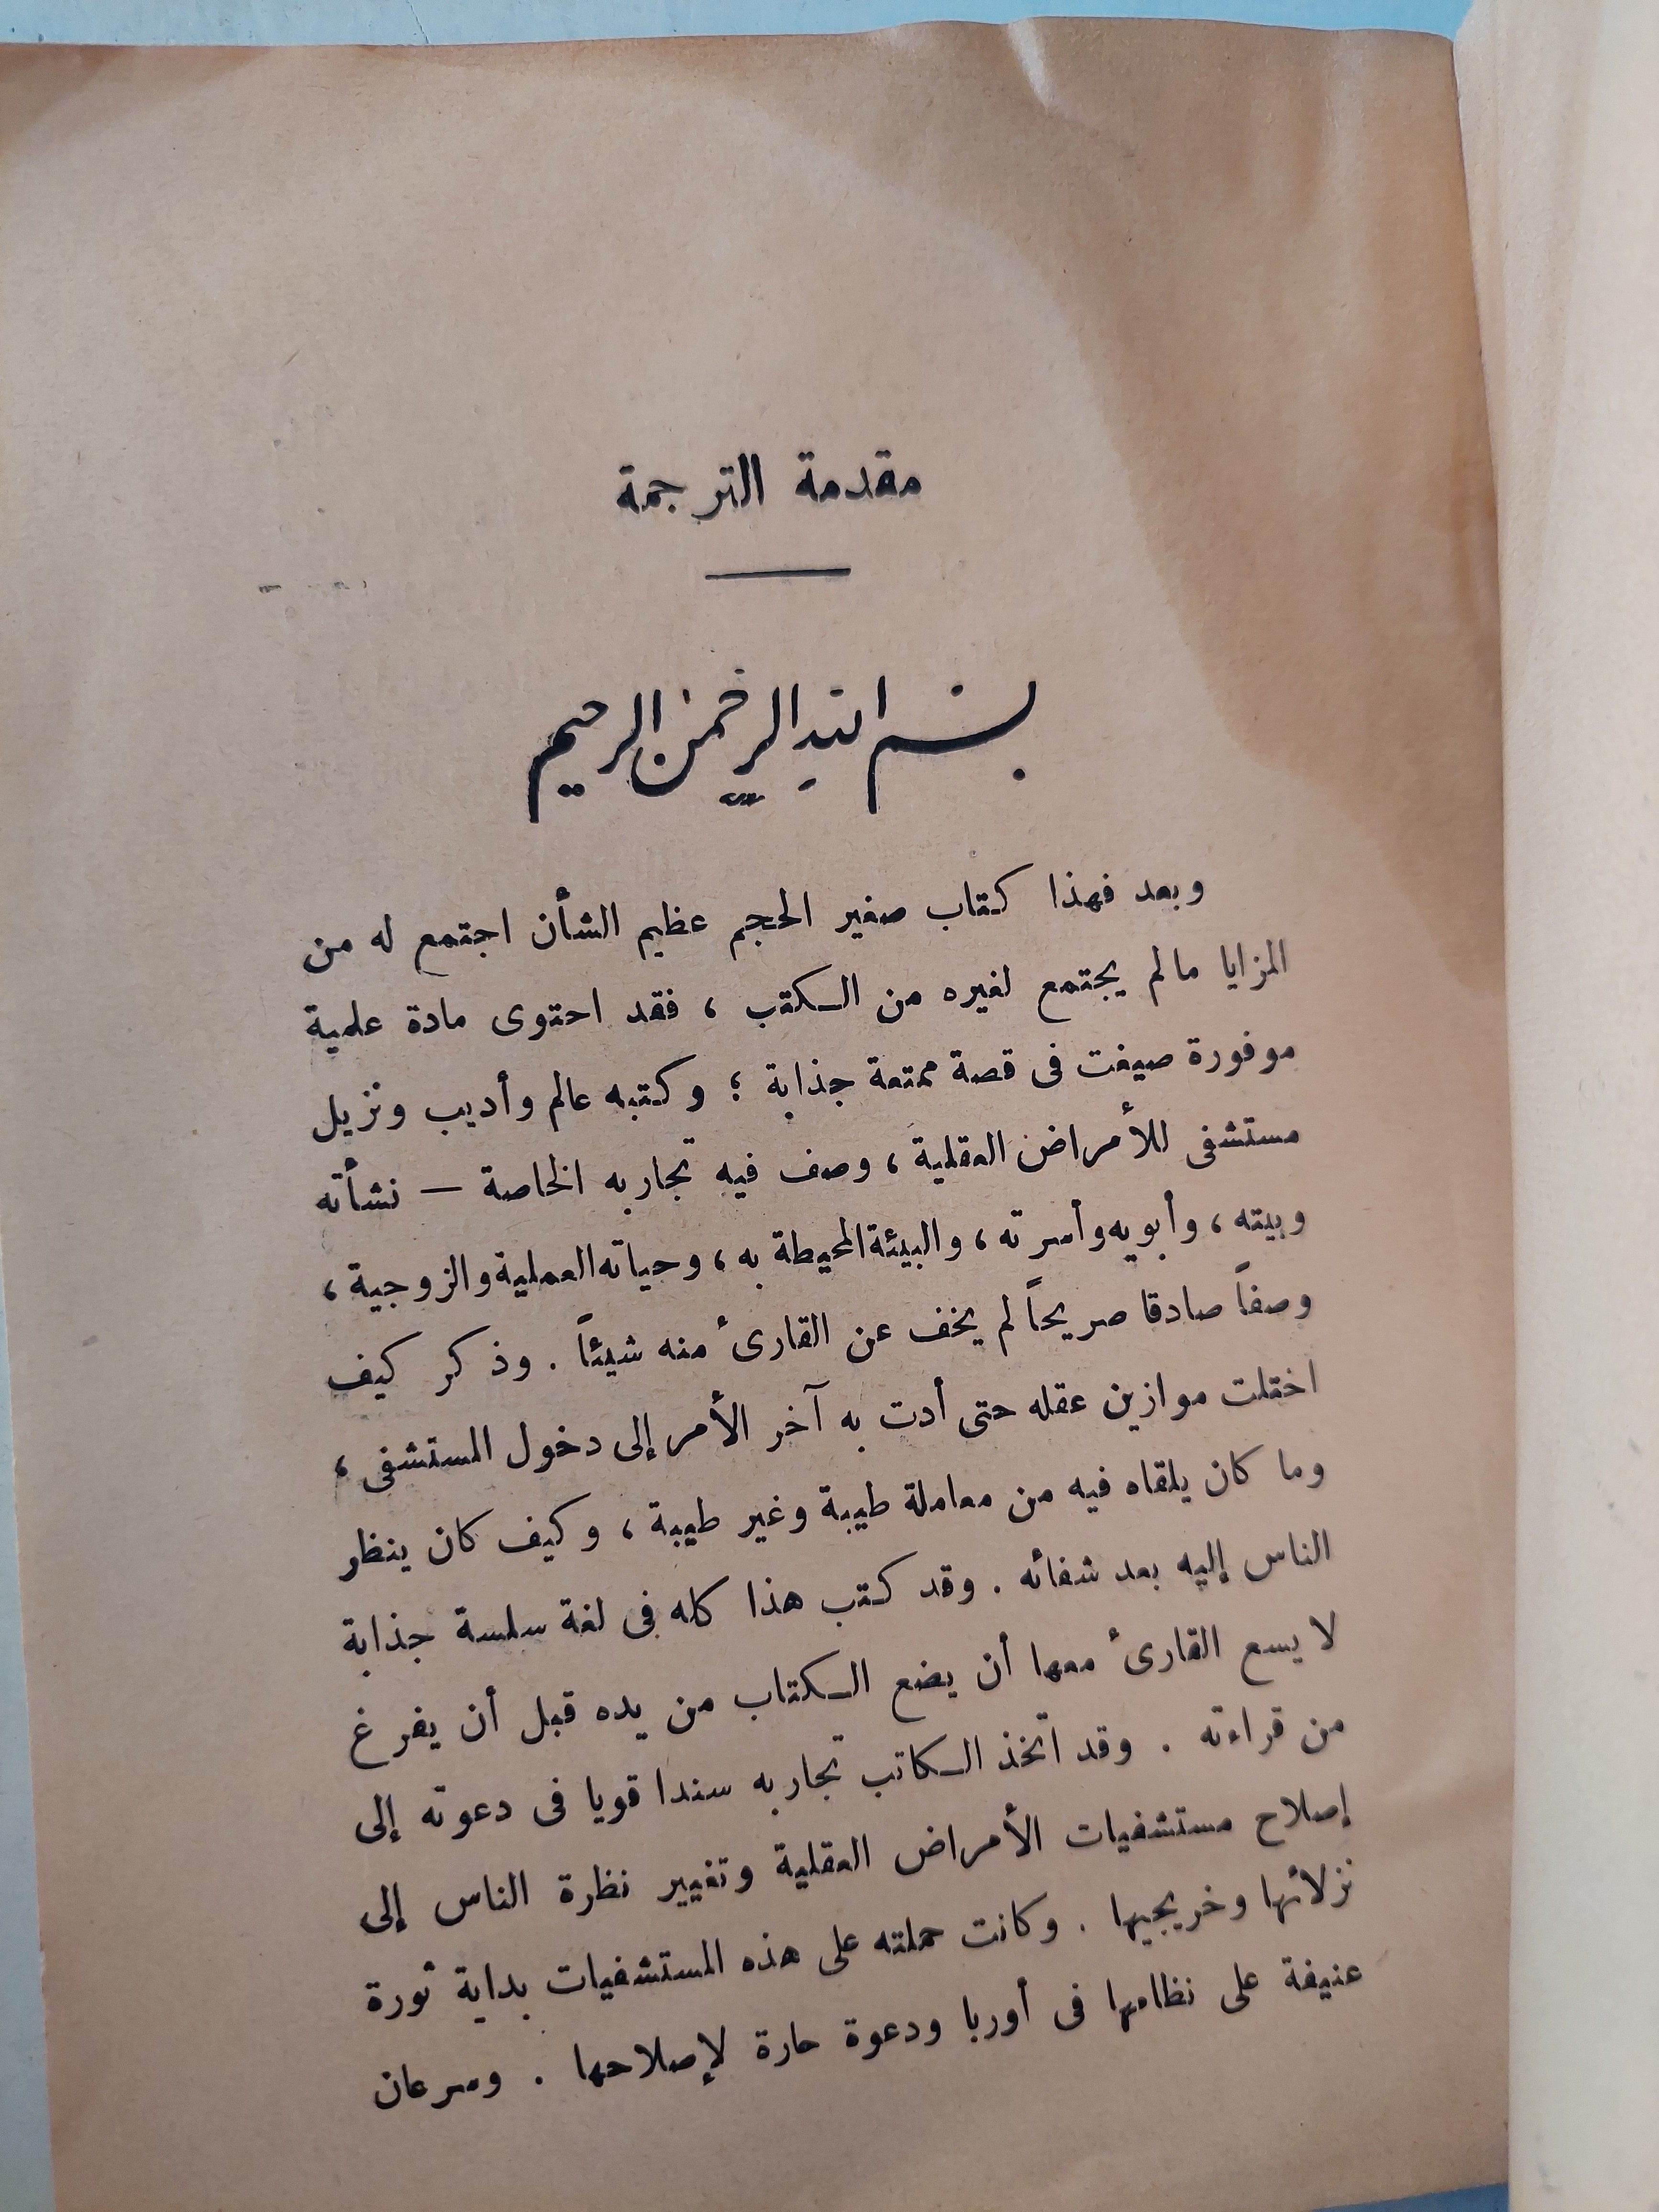 مقدمة الترجمة
بسم الله الرحمن الرحيم
وبعد فهذا كتاب صغير الحجم عظيم الشأن اجتمع له من
المزايا مالم يجتمع لغيره من الكتب ، فقد احتوى مادة علمية
موفورة صيغت فى قصة ممتعة جذابة ؛ وكتبه عالم وأديب ونزيل
مستشفى للأمراض العقلية ، وصف فيه تجاربه الخاصة — نشأته
وبيته ، وأبويه وأسرته ، والبيئة المحيطة به ، وحياته العملية والزوجية ،
وصفاً صادقا صريحاً لم يخف عن القارئ منه شيئاً . وذكر كيف
اختلت موازين عقله حتى أدت به آخر الأمر إلى دخول المستشفى ،
وما كان يلقاه فيه من معاملة طيبة وغير طيبة ، وكيف كان ينظر
الناس إليه بعد شفائه . وقد كتب هذا كله فى لغة سلسة جذابة
لا يسع القارئ معها أن يضع الكتاب من يده قبل أن يفرغ
من قراءته . وقد اتخذ الكاتب تجاربه سندا قويا فى دعوته إلى
إصلاح مستشفيات الأمراض العقلية وتغيير نظرة الناس إلى
نزلائها وخريجيها . وكانت حملته على هذه المستشفيات بداية ثورة
عنيفة على نظامها فى أوربا ودعوة حارة لإصلاحها . وسرعان